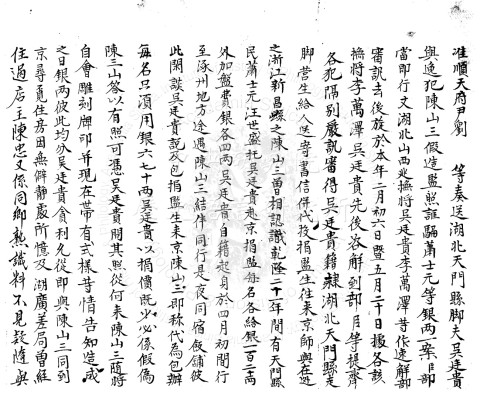 准順天府尹劉　等奏送湖北天門縣脚夫吳廷貴
與逸犯陳山三假造監照誆騙蕭士元等銀兩一案臣部
當即行文湖北山西巡撫將吳廷貴李萬澤昔作速解部
審訊去後旋於本年二月初六日暨五月二十日據各該
撫將李萬澤吳廷貴先後咨解到部臣等提齊
各犯隔別嚴訊審得吳廷貴籍隸湖北天門縣走
脚營生給人送寄書信併代投捐監生往來京師與在逃
之浙江新昌縣之陳山三曾相認識乾隆二十一年間有天門縣
民蕭士元汪世盛托吳廷貴赴京捐監每名各給銀一百二兩
外加盤費銀各四兩吳廷貴自籍起身於四月初間行
至涿州地方途遇陳山三結伴同行是夜同宿飯舖彼
此閑談吳廷貴說及包捐監生來京陳山三即稱代為包辦
每名只須用銀六七十兩吳廷貴以捐價既少必係假偽
陳三山答以有照可憑吳廷貴問其照從何來陳山三隨將
自會雕刻牌印并現在帶有式樣昔情告知造成
之日銀兩彼此均分吳廷貴貪利允從即與陳山三同到
京尋覓住房因無僻靜處所憶及湖廣差局曾經
住過店主陳忠文係同鄉熟識料不見疑隨與